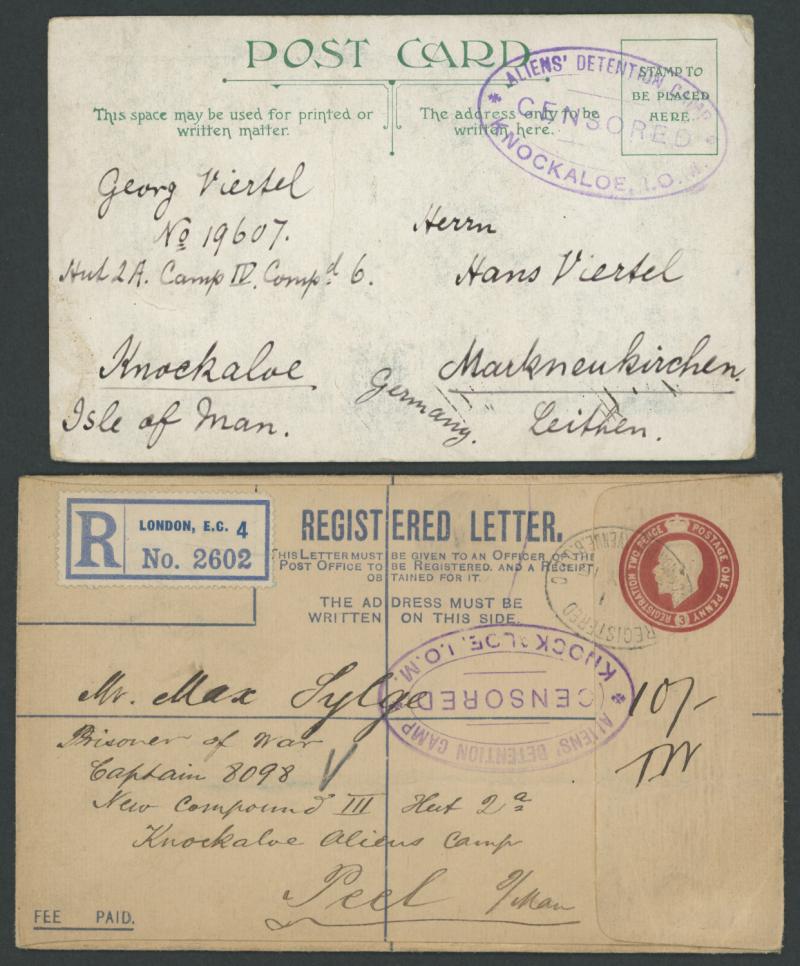 POST CARD
This space may be used for printed or
written matter.
The address only to be
written here.
STAMP TO
BE PLACED
HERE.
ALIENS' DETENTION CAMP
CENSORED
KNOCKALOE, I.O.M.
Georg Viertel
No 19607.
Hut 2A. Camp IV. Compd 6.
Knockaloe
Isle of Man.
Herrn
Hans Viertel
Markneukirchen
Germany.
Leithen.
R
LONDON, E.C. 4
No. 2602
REGISTERED LETTER.
THIS LETTER MUST BE GIVEN TO AN OFFICER OF THE
POST OFFICE TO BE REGISTERED, AND A RECEIPT
OBTAINED FOR IT.
THE ADDRESS MUST BE
WRITTEN ON THIS SIDE.
REGISTRATION TWO PENCE
POSTAGE ONE PENNY
3
REGISTERED
KNOCKALOE, I.O.M.
CENSORED
ALIENS' DETENTION CAMP
Mr. Max Sylge
10/-
Prisoner of War
Captain 8098
New Compound III Hut 2a
Knockaloe Aliens Camp
Peel
I/Man
FEE PAID.